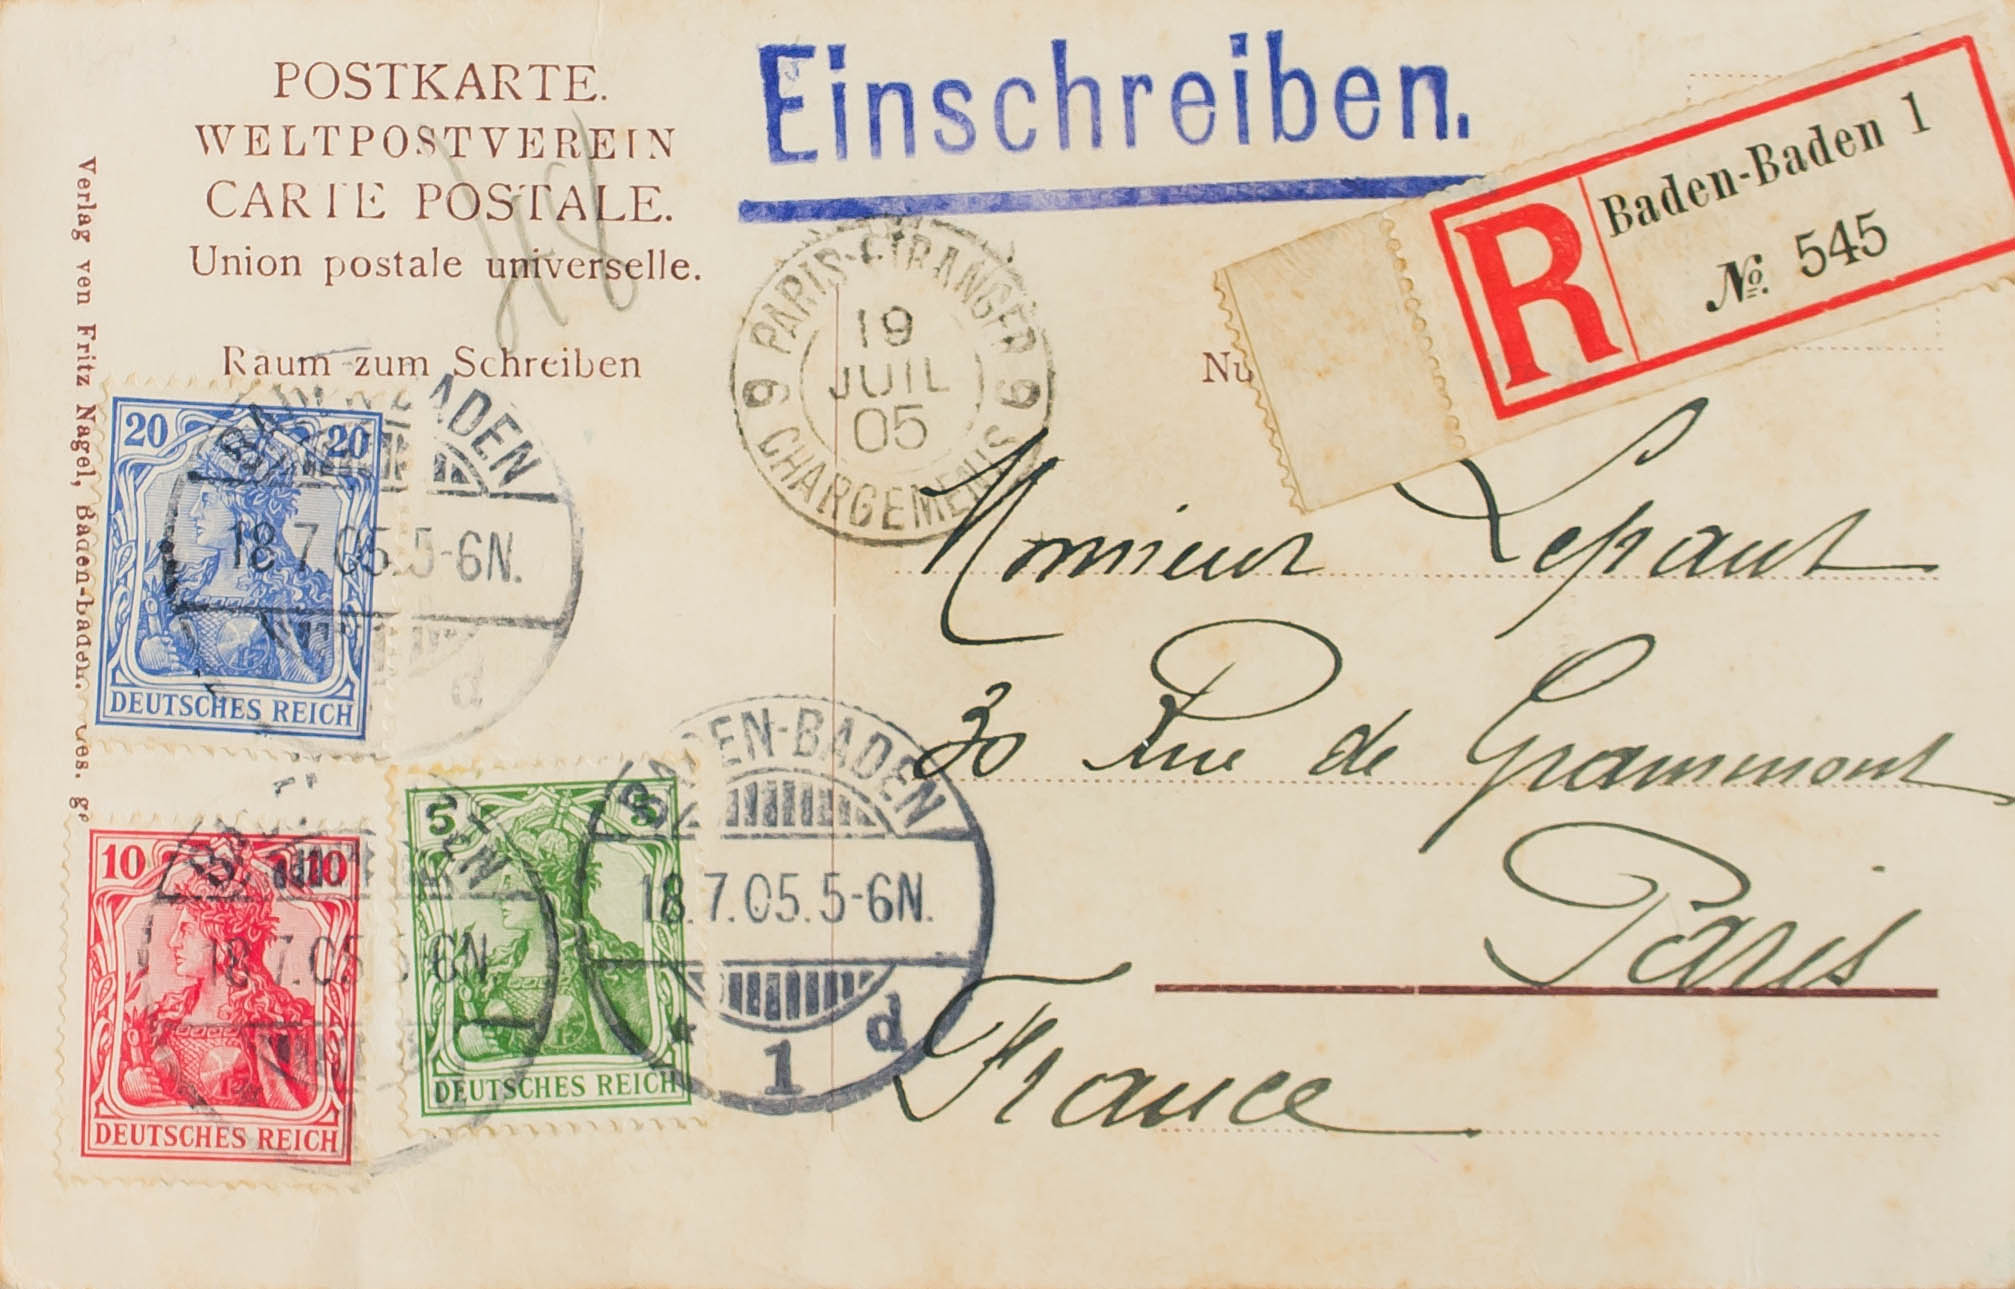 POSTKARTE.
WELTPOSTVEREIN
CARTE POSTALE.
Union postale universelle.
Raum zum Schreiben
48
Einschreiben.
R
Baden-Baden 1
№ 545
PARIS-ETRANGER
9 9
19
JUIL
05
CHARGEMENTS
Nu
Verlag von Fritz Nagel, Baden-Baden.
20 20
DEUTSCHES REICH
BADEN-BADEN
18.7.05.5-6N.
d
10 10
DEUTSCHES REICH
18.7.05.5-6N.
5 5
DEUTSCHES REICH
BADEN-BADEN
18.7.05.5-6N.
* 1 d
Monsieur Lepaut
30 Rue de Grammont
Paris
France